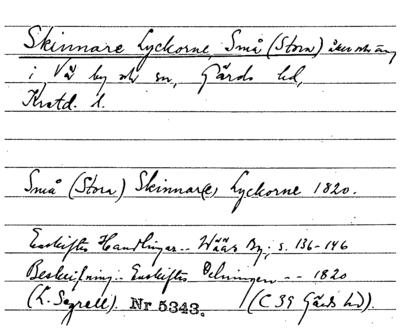 Skinnare Lyckorne, Små (Stora) åker och äng
i Vä by och sn, Gärds hd,
Kristd. l.
Små (Stora) Skinnar(e) Lyckorne 1820.
Enskiftes Handlingar.. Wääs By; s. 136-146
Beskrifning.. Enskiftes Delningen -- 1820
(L. Segrell). Nr 5343. (C 39 Gärds hd).